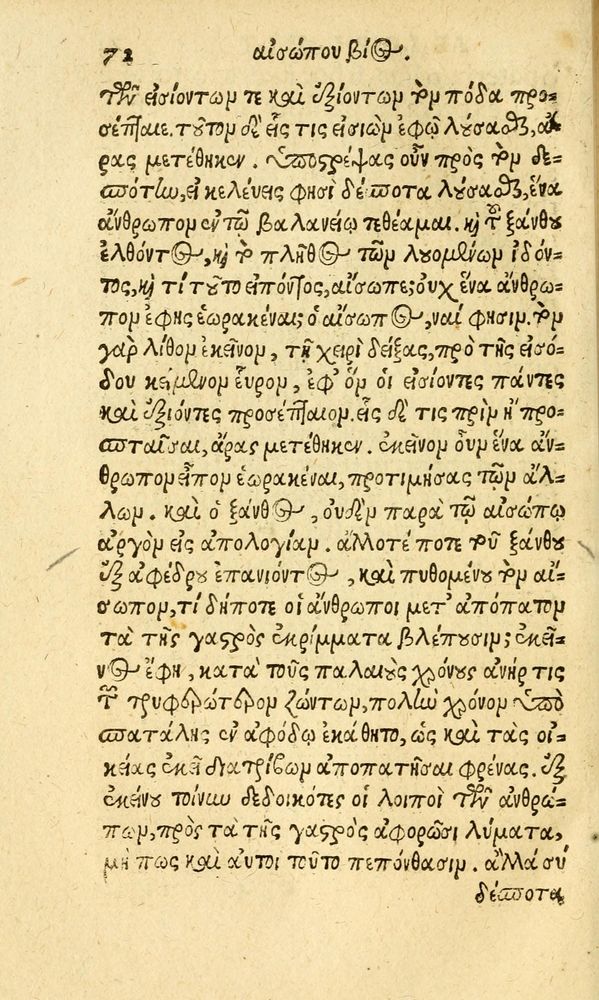 72 αἰσώπου βίος.
τῶν εἰσιόντων τε καὶ ἐξιόντων τὸν πόδα προσ=
έπταιε. τοῦτον δὲ εἷς τις εἰσιὼν ἐφ' ᾧ λούσασθαι, ἄ=
ρας μετέθηκεν. ὑποστρέψας οὖν πρὸς τὸν δε=
σπότην, εἰ κελεύεις φησὶ δέσποτα λούσασθαι, ἕνα
ἄνθρωπον ἐν τῷ βαλανείῳ τεθέαμαι. καὶ τοῦ ξάνθου
ἐλθόντος, καὶ τὸ πλῆθος τῶν λουομένων ἰδόν=
τος, καὶ τί τοῦτο εἰπόντος, αἴσωπε; οὐχ ἕνα ἄνθρω=
πον ἔφης ἑωρακέναι; ὁ αἴσωπος, ναί φησιν. τὸν
γὰρ λίθον ἐκεῖνον, τῇ χειρὶ δείξας, πρὸ τῆς εἰσό=
δου κείμενον εὗρον, ἐφ' ὃν οἱ εἰσιόντες πάντες
καὶ ἐξιόντες προσέπταιον. εἷς δέ τις πρὶν ἢ προ=
σπταῖσαι, ἄρας μετέθηκεν. ἐκεῖνον οὖν ἕνα ἄν=
θρωπον εἶπον ἑωρακέναι, προτιμήσας τῶν ἄλ=
λων. καὶ ὁ ξάνθος, οὐδὲν παρὰ τῷ αἰσώπῳ
ἀργὸν εἰς ἀπολογίαν. ἄλλοτέ ποτε τοῦ ξάνθου
ἐξ ἀφέδρου ἐπανιόντος, καὶ πυθομένου τὸν αἴ=
σωπον, τί δήποτε οἱ ἄνθρωποι μετ' ἀπόπατον
τὰ τῆς γαστρὸς ἐκρίμματα βλέπουσιν; ἐκεῖ=
νος ἔφη, κατὰ τοὺς παλαιοὺς χρόνους ἀνήρ τις
τῶν τρυφερώτερον ζώντων, πολὺν χρόνον ὑπὸ
σπατάλης ἐν ἀφόδῳ ἐκάθητο, ὡς καὶ τὰς οἰ=
κείας ἐκεῖ διατρίβων ἀποπατῆσαι φρένας. ἐξ
ἐκείνου τοίνυν δεδοικότες οἱ λοιποὶ τῶν ἀνθρώ=
πων, πρὸς τὰ τῆς γαστρὸς ἀφορῶσι λύματα,
μή πως καὶ αὐτοὶ τοῦτο πεπόνθασιν. ἀλλὰ σύ
δέσποτα